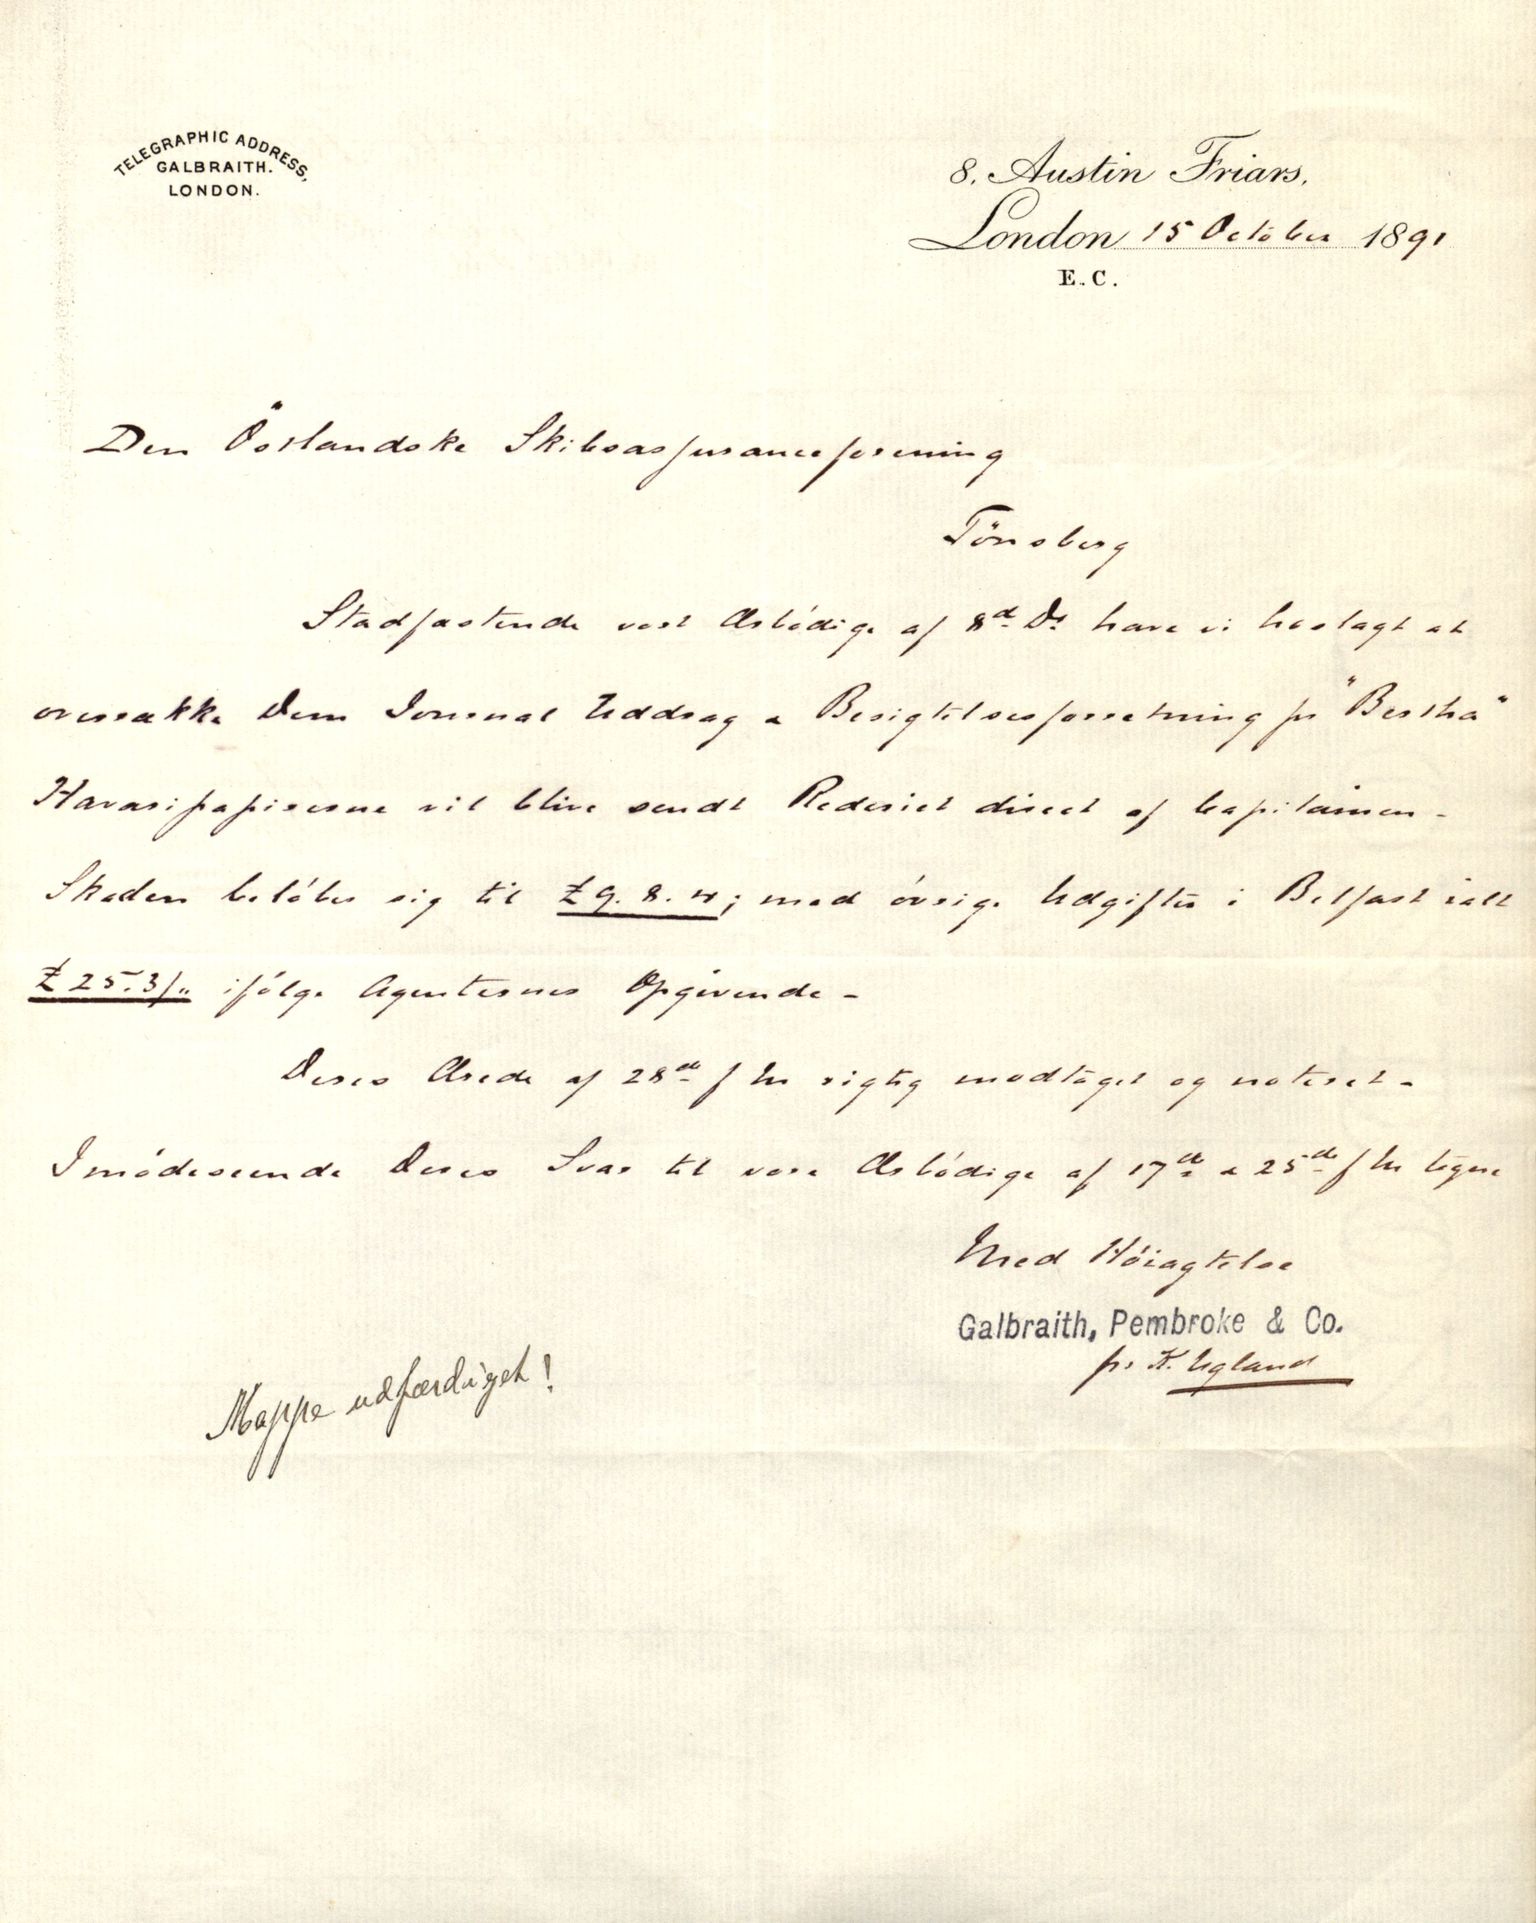 TELEGRAPHIC ADDRESS,
GALBRAITH.
LONDON.
8, Austin Friars,
London 15 October 1891
E.C.
Den Östlandske Skibsassuranceforening
Tönsberg
Stadfæstende vort Ærbödige af 8de Ds have vi herlagt at
overrække Dem Journal Uddrag & Besigtelsesforretning pr "Bertha"
Havaripapirerne vil blive sendt Rederiet direct af Capitainen -
Skaden belöber sig til £ 9. 8. 4; med övrige Udgifter i Belfast ialt
£ 25.3/" ifölge Agenternes Opgivende -
Deres Ærede af 28de f M rigtig modtaget og noteret -
Imödeseende Deres Svar til vore Ærbödige af 17de & 25de f M tegne
Med Höiagtelse
Galbraith, Pembroke & Co.
pr K. Ugland
Mappe udfærdiget!